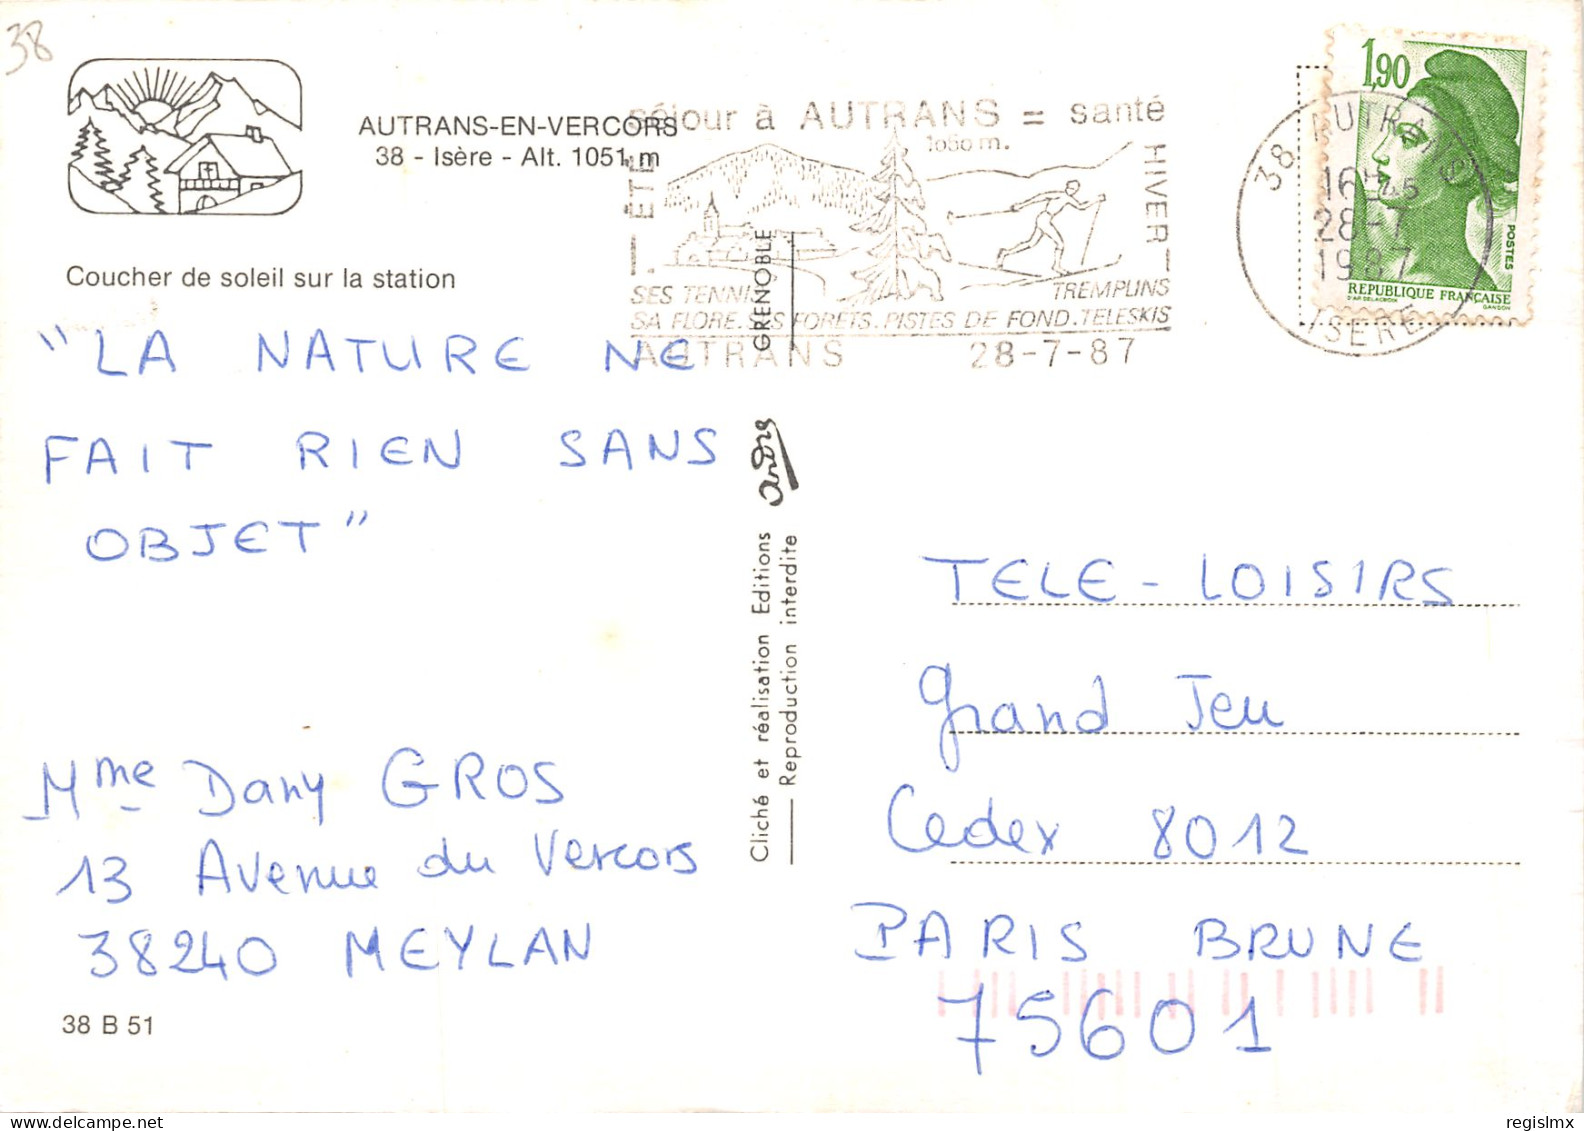 38
AUTRANS-EN-VERCORS
38 - Isère - Alt. 1051 m
Coucher de soleil sur la station
séjour à AUTRANS = santé
1060 m.
ÉTÉ
HIVER
SES TENNIS
TREMPLINS
SA FLORE. SES FORÊTS. PISTES DE FOND. TELESKIS
AUTRANS 28-7-87
38 AUTRANS
16H45
28-7
1987
ISERE
1,90
POSTES
REPUBLIQUE FRANÇAISE
D'AP. DELACROIX
GANDON
"LA NATURE NE
FAIT RIEN SANS
OBJET"
Mme Dany GROS
13 Avenue du Vercors
38240 MEYLAN
38 B 51
GRENOBLE
andris
Cliché et réalisation Editions
Reproduction interdite
TELE-LOISIRS
Grand Jeu
Cedex 8012
PARIS BRUNE
75601
regislmx